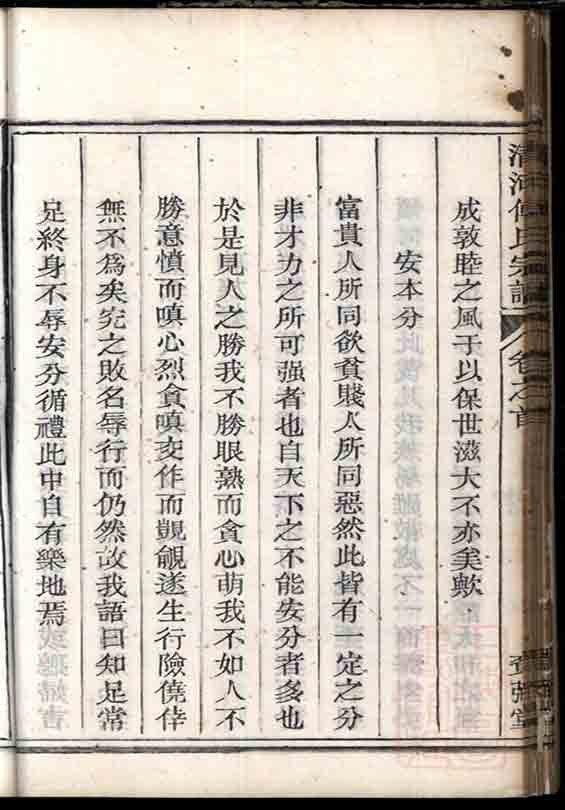 清河傅氏宗譜 卷之首
成敦睦之風于以保世滋大不亦矣歟
安本分
富貴人所同欲貧賤人所同惡然此皆有一定之分
非才力之所可强者也自天下之不能安分者多也
於是見人之勝我不勝眼熱而貪心萌我不如人不
勝意憤而嗔心烈貪嗔交作而覬覦遂生行險僥倖
無不為矣究之敗名辱行而仍然故我語曰知足常
足終身不辱安分循禮此中自有樂地焉